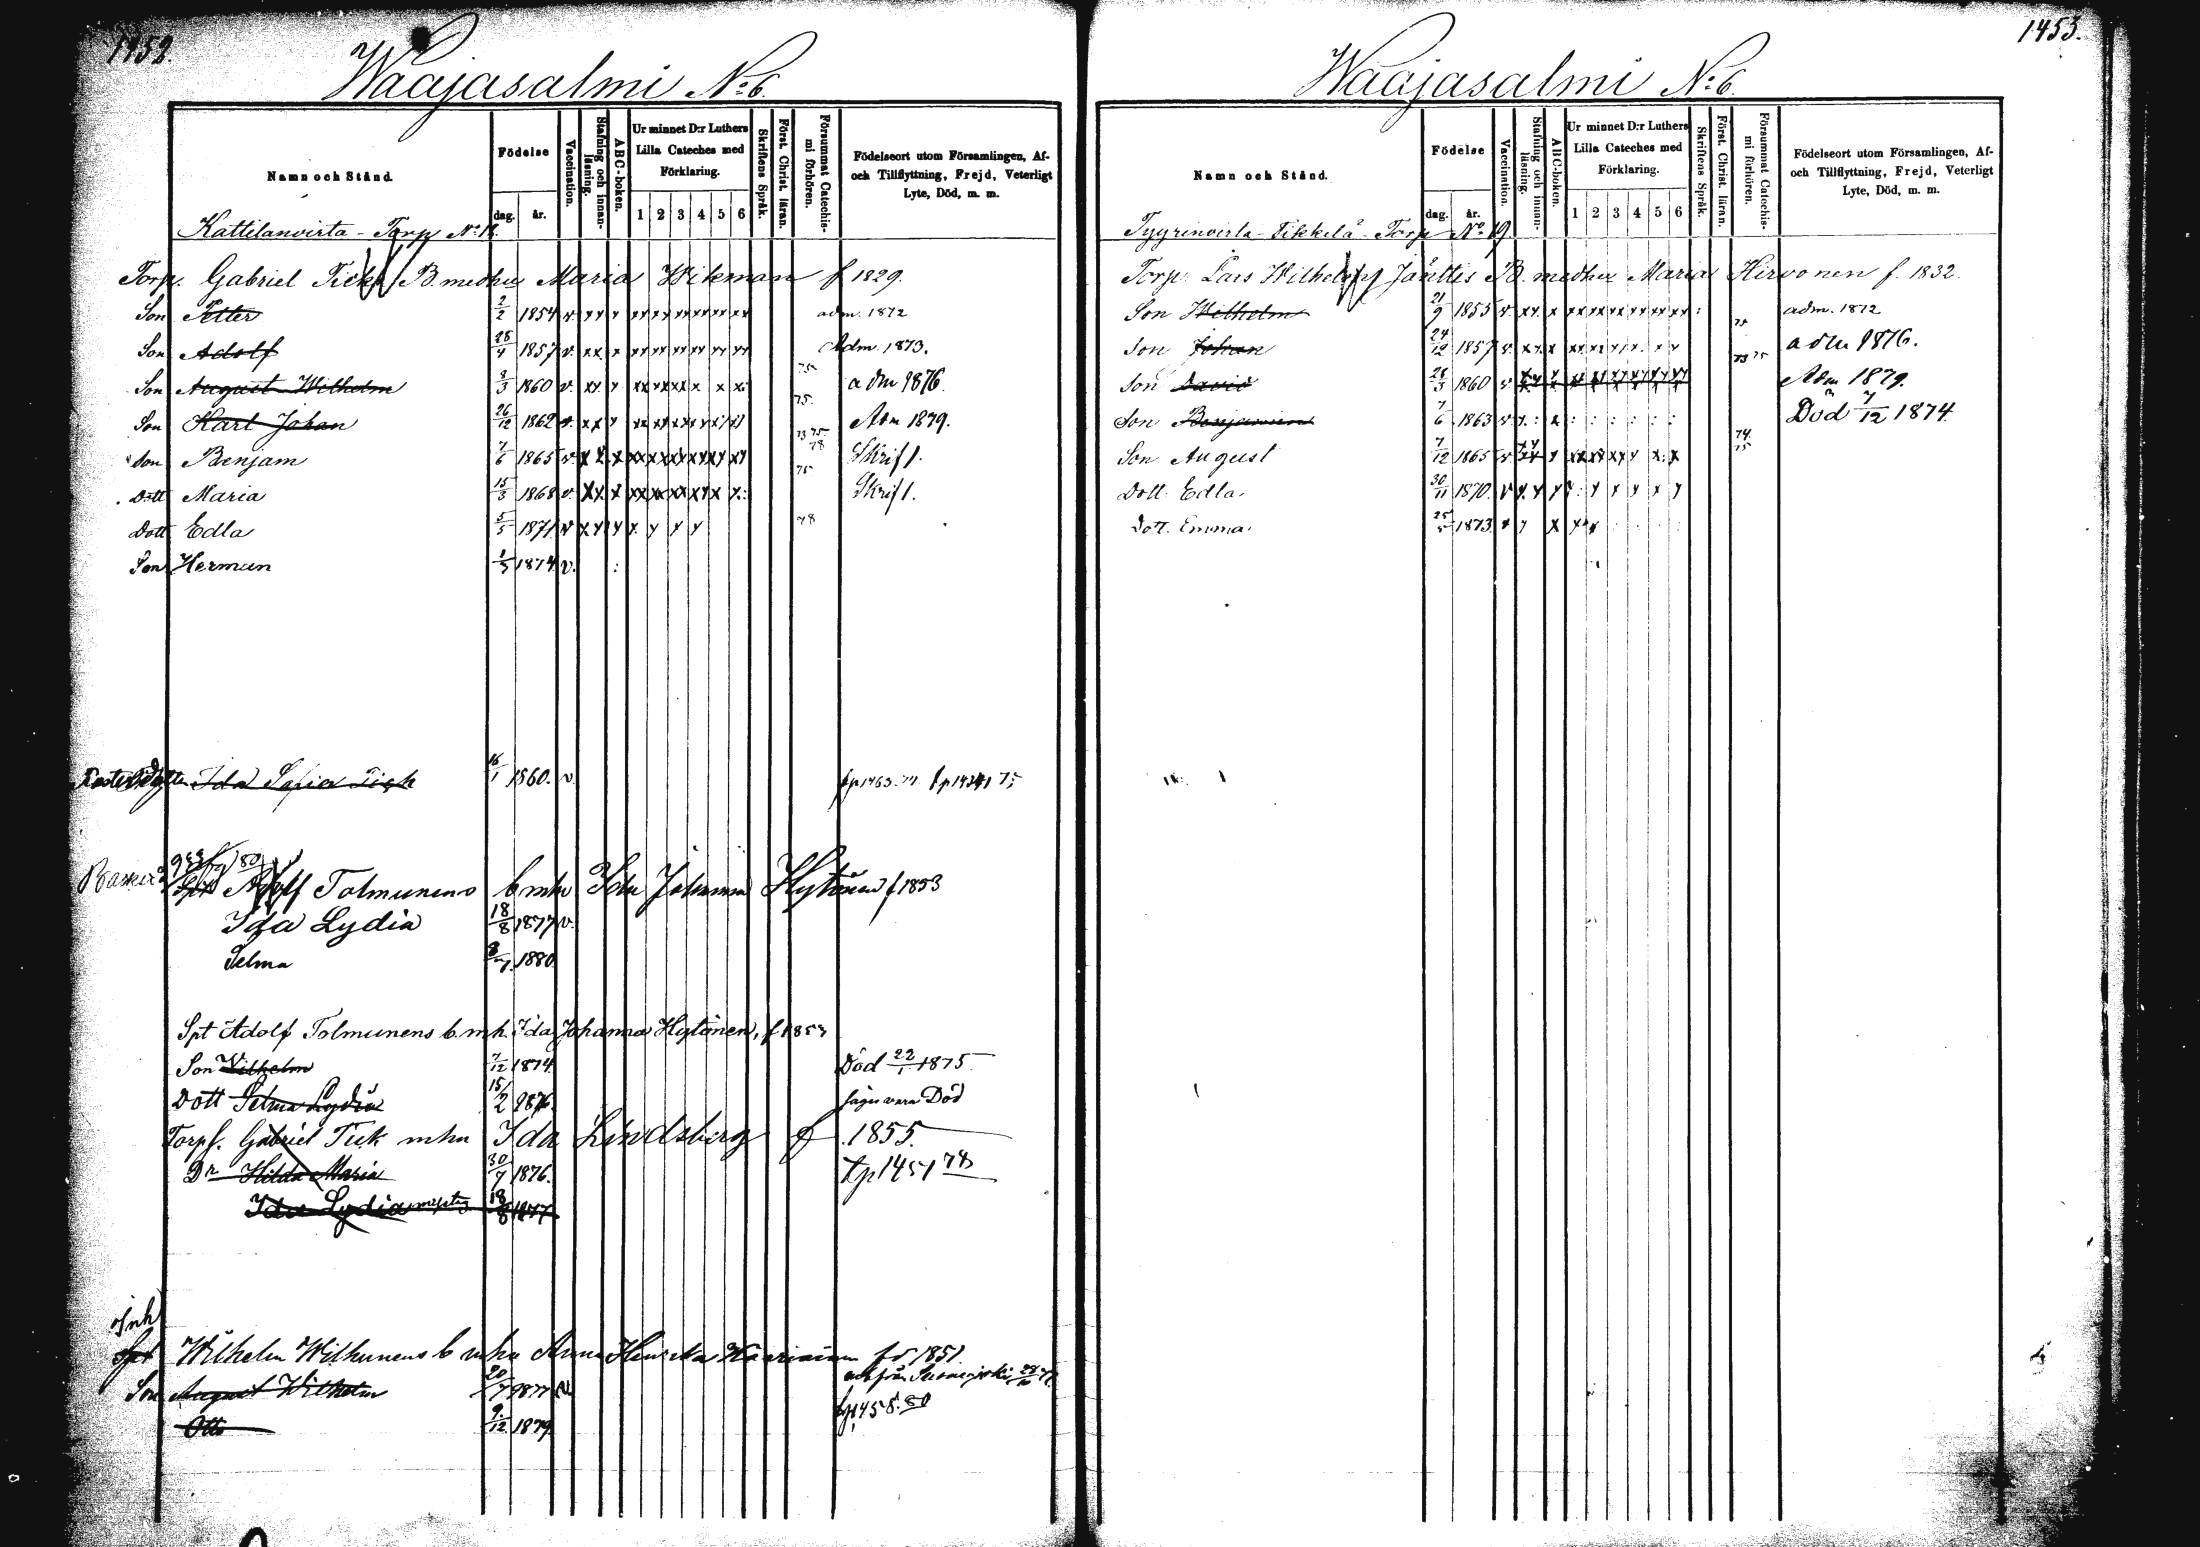 1452.
Waajasalmi No 6.
Namn och Stånd.
Födelse
dag. år.
Vaccination.
Stafning och innan-läsning.
ABC-boken.
Ur minnet D:r Luthers Lilla Cateches med Förklaring.
1 2 3 4 5 6
Skriftens Språk.
Först. Christ. läran.
Försummat Catechis-mi förhören.
Födelseort utom Församlingen, Af- och Tillflyttning, Frejd, Veterligt Lyte, Död, m. m.
Kattilanvirta - Torp No 18.
Torp. Gabriel Tick B. medhu Maria Wikman f 1829.
Son Petter 2/2 1854 v adm. 1872
Son Adolf 28/4 1857 v. Adm. 1873.
Son August Wilhelm 8/3 1860 v. 75 adm 1876.
Son Karl Johan 26/12 1862 v. 75. Adm 1879.
Son Benjam 7/6 1865 v 73 75 78 Skrift.
Dott Maria 15/3 1868 v. 75 Skrift.
Dott Edla 5/5 1871 v 78
Son Herman 1/5 1874 v.
Ida Sofia Tick 16/1 1860. v.
Spt Adolf Tolmunens b mhu Ida Johanna Hytönen f 1853
Ida Lydia 18/8 1877 v.
Selma 8/7. 1880
Spt Adolf Tolmunens b. mh. Ida Johanna Hytönen, f 1853
Son Vilhelm 7/12 1874 Död 22/1 1875
Dott Selma Lydia 15/2 1876. säges vara Död
Torpf. Gabriel Tick mhu Ida Lindsberg f 1855.
Dr Hilda Maria 30/7 1876. tp 1451 78
Ida Lydia 18/8 1877
Inh
Spt Wilhelm Wilhunens b mhu Anna fö 1851
Son August Wilhelm 20/7 1877 v
Otto 9/12 1879 tp 1458. 80
1453.
Waajasalmi No 6.
Namn och Stånd.
Födelse
dag. år.
Vaccination.
Stafning och innan-läsning.
ABC-boken.
Ur minnet D:r Luthers Lilla Cateches med Förklaring.
1 2 3 4 5 6
Skriftens Språk.
Först. Christ. läran.
Försummat Catechis-mi förhören.
Födelseort utom Församlingen, Af- och Tillflyttning, Frejd, Veterligt Lyte, Död, m. m.
Tyyrinvirta - Tikkelä - Torp No 19
Torp. Lars Wilhelm Jänttis B. medhu Maria Hirvonen f. 1832.
Son Wilhelm 21/9 1855 v adm. 1872
Son Johan 24/12 1857 v 75 adm 1876.
Son David 28/3 1860 v 73 75 Adm 1879.
Son Benjamin 7/6 1863 v Död 7/12 1874
Son August 7/12 1865 v 74. 75
Dott. Edla 30/11 1870. v
Dott. Emma 25/5 1873.